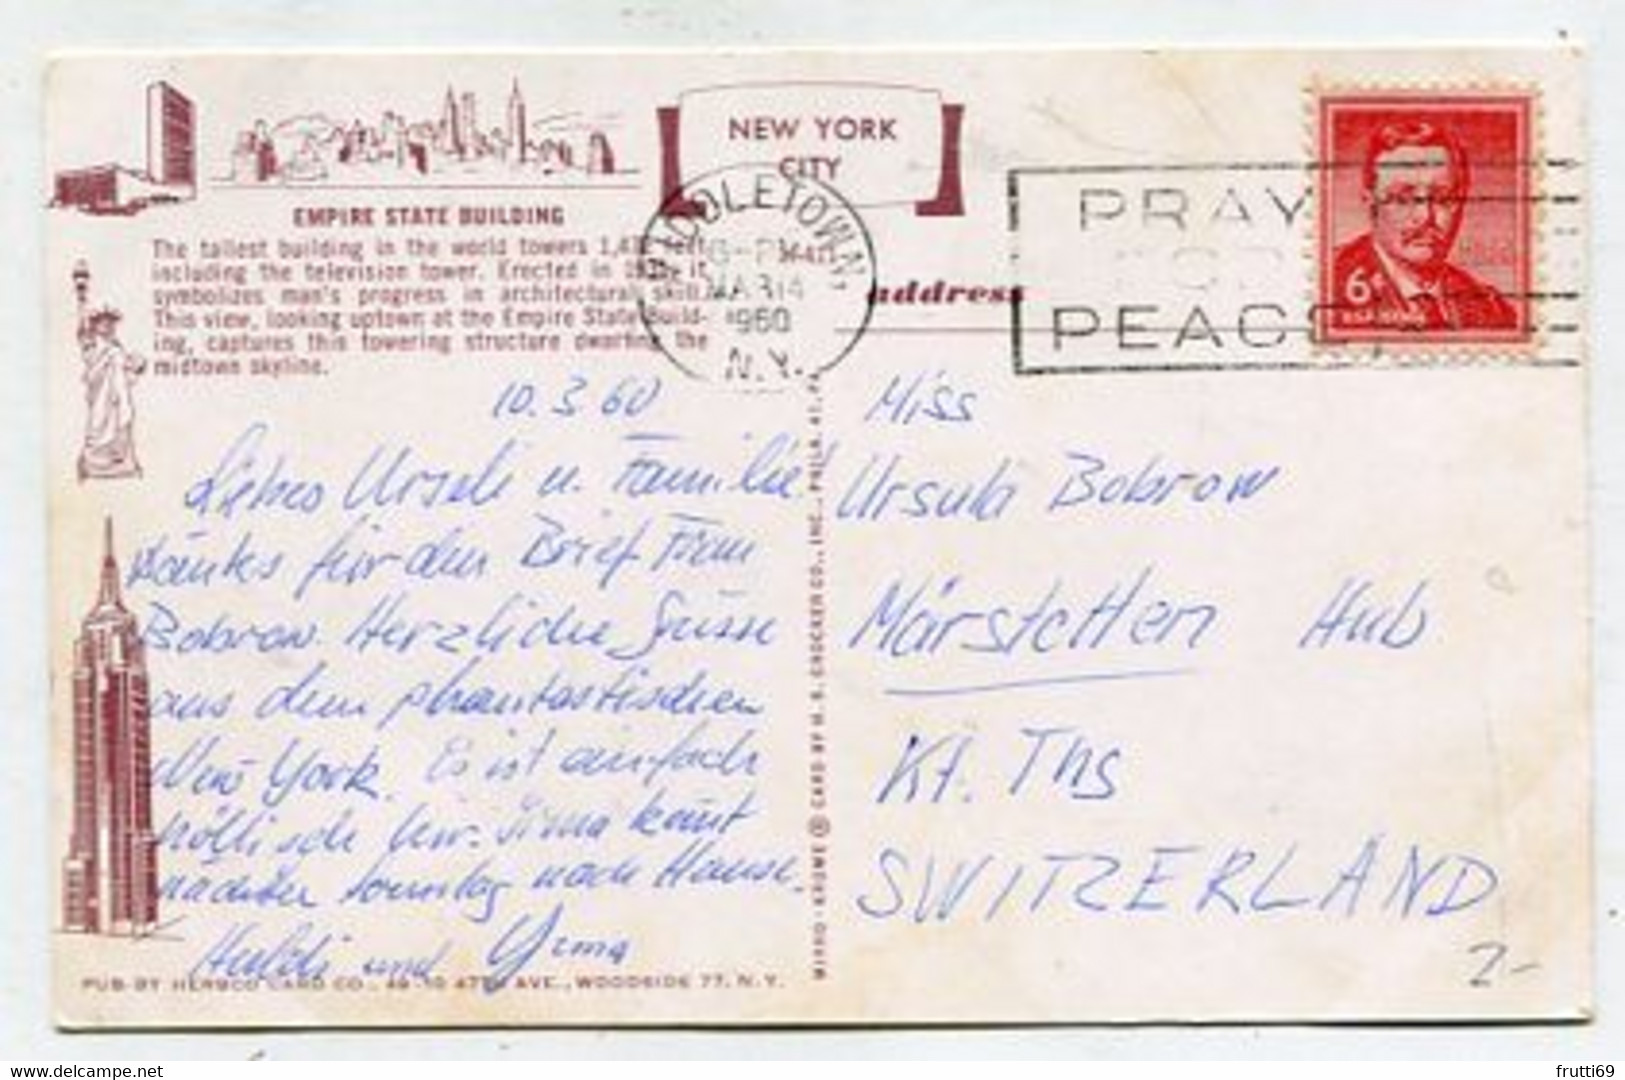 NEW YORK
CITY
EMPIRE STATE BUILDING
The tallest building in the world towers 1,472 feet
including the television tower. Erected in 1931, it
symbolizes man's progress in architectural skill.
This view, looking uptown at the Empire State Build-
ing, captures this towering structure dwarfing the
midtown skyline.
MIDDLETOWN,
MAR 14
1960
N.Y.
address
PRAY
FOR
PEACE
6¢
10.3.60
Liebes Urseli u. Familie
Danke für den Brief Frau
Bobrow. Herzliche Grüsse
aus dem phantastischen
New York. Es ist einfach
höllisch hier. Irma kommt
nächster Sonntag nach Hause.
Huldi und Yrma
Miss
Ursula Bobrow
Märstetten Hub
Kt. Thg
SWITZERLAND
MIRRO-KROME ® CARD BY H. S. CROCKER CO., INC., PHILA. 41, PA.
PUB. BY HERBCO CARD CO., 49-10 47TH AVE., WOODSIDE 77, N.Y.
2-
delcampe.net
frutti69